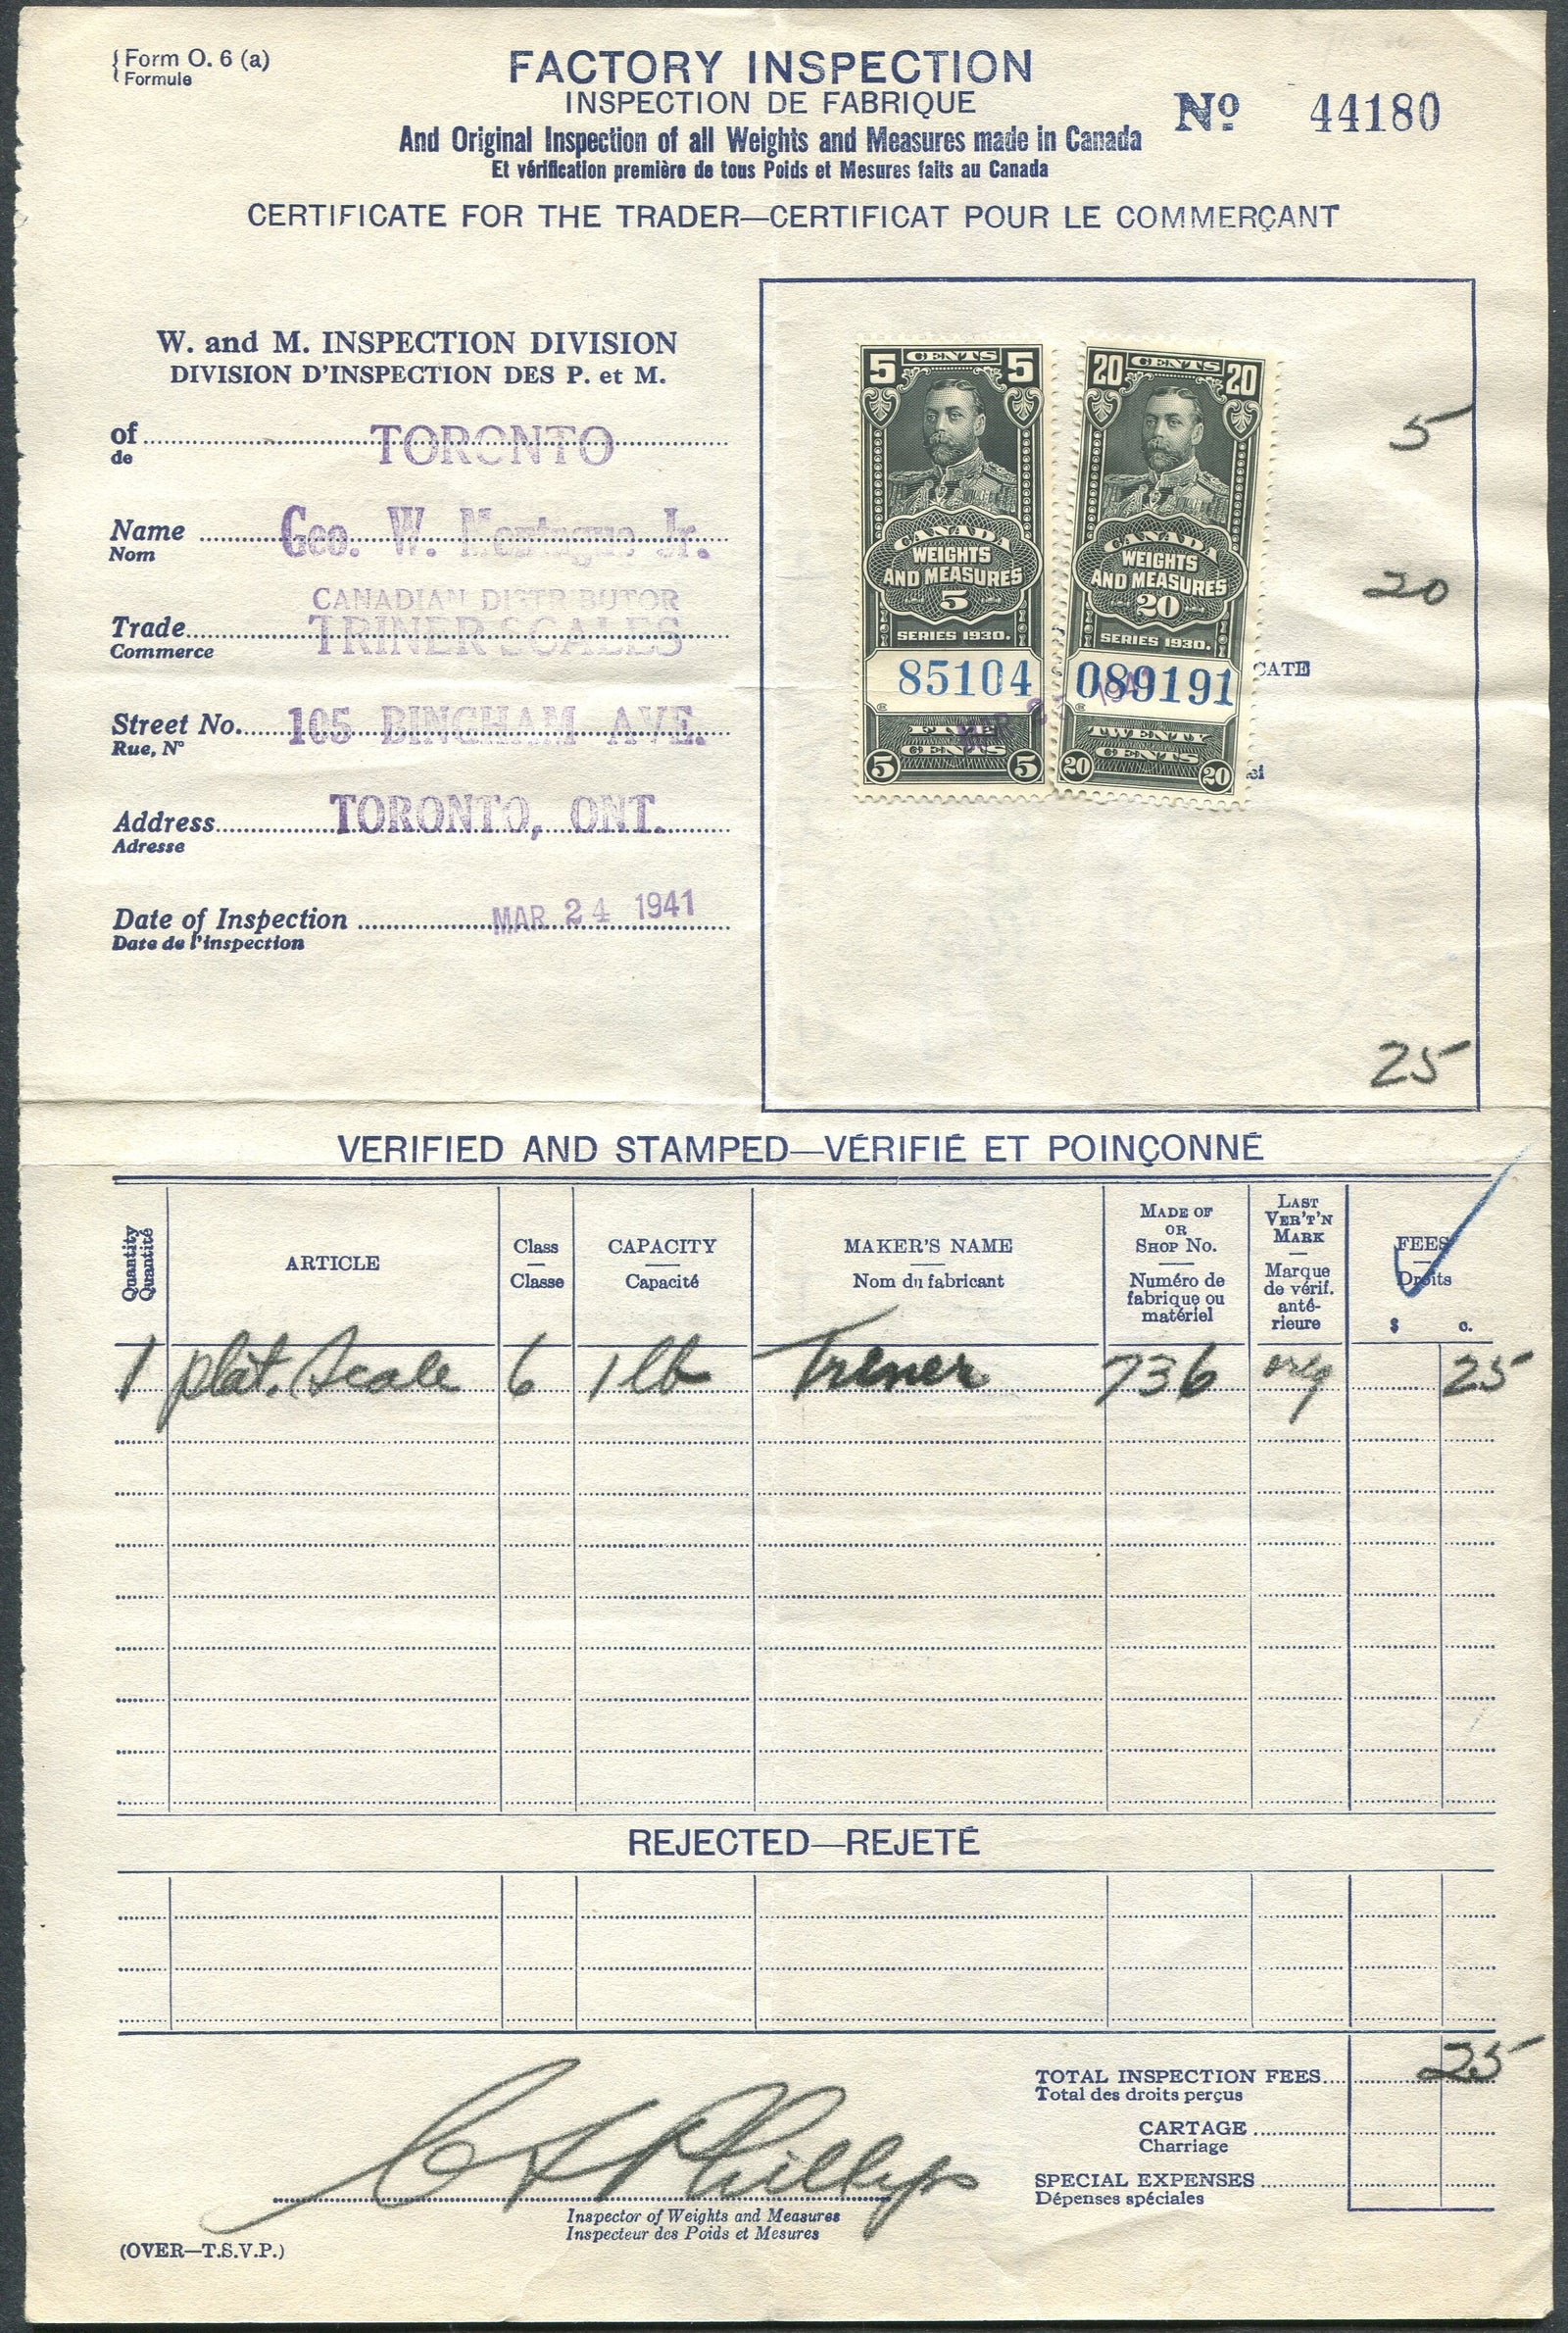 Form O. 6 (a)
Formule
FACTORY INSPECTION
INSPECTION DE FABRIQUE
And Original Inspection of all Weights and Measures made in Canada
Et vérification première de tous Poids et Mesures faits au Canada
No. 44180
CERTIFICATE FOR THE TRADER—CERTIFICAT POUR LE COMMERÇANT
W. and M. INSPECTION DIVISION
DIVISION D'INSPECTION DES P. et M.
of TORONTO
de
Name Geo. W. Montague Jr.
Nom
CANADIAN DISTRIBUTOR
Trade TRINER SCALES
Commerce
Street No. 105 BINGHAM AVE.
Rue, No
Address TORONTO, ONT.
Adresse
Date of Inspection MAR 24 1941
Date de l'inspection
5 CENTS 5
CANADA
WEIGHTS
AND MEASURES
5
SERIES 1930.
85104
FIVE
CENTS
5 5
20 CENTS 20
CANADA
WEIGHTS
AND MEASURES
20
SERIES 1930.
089191
TWENTY
CENTS
20 20
MAR 24 1941
CATE
5
20
25
VERIFIED AND STAMPED—VÉRIFIÉ ET POINÇONNÉ
Quantity
Quantité
ARTICLE
Class
Classe
CAPACITY
Capacité
MAKER'S NAME
Nom du fabricant
MADE OF
OR
SHOP No.
Numéro de
fabrique ou
matériel
LAST
VER'T'N
MARK
Marque
de vérif.
anté-
rieure
FEES
Droits
$ c.
1 plat. Scale 6 1 lb Triner 736 orig 25
REJECTED—REJETÉ
TOTAL INSPECTION FEES 25
Total des droits perçus
CARTAGE
Charriage
SPECIAL EXPENSES
Dépenses spéciales
Phillips
Inspector of Weights and Measures
Inspecteur des Poids et Mesures
(OVER—T.S.V.P.)